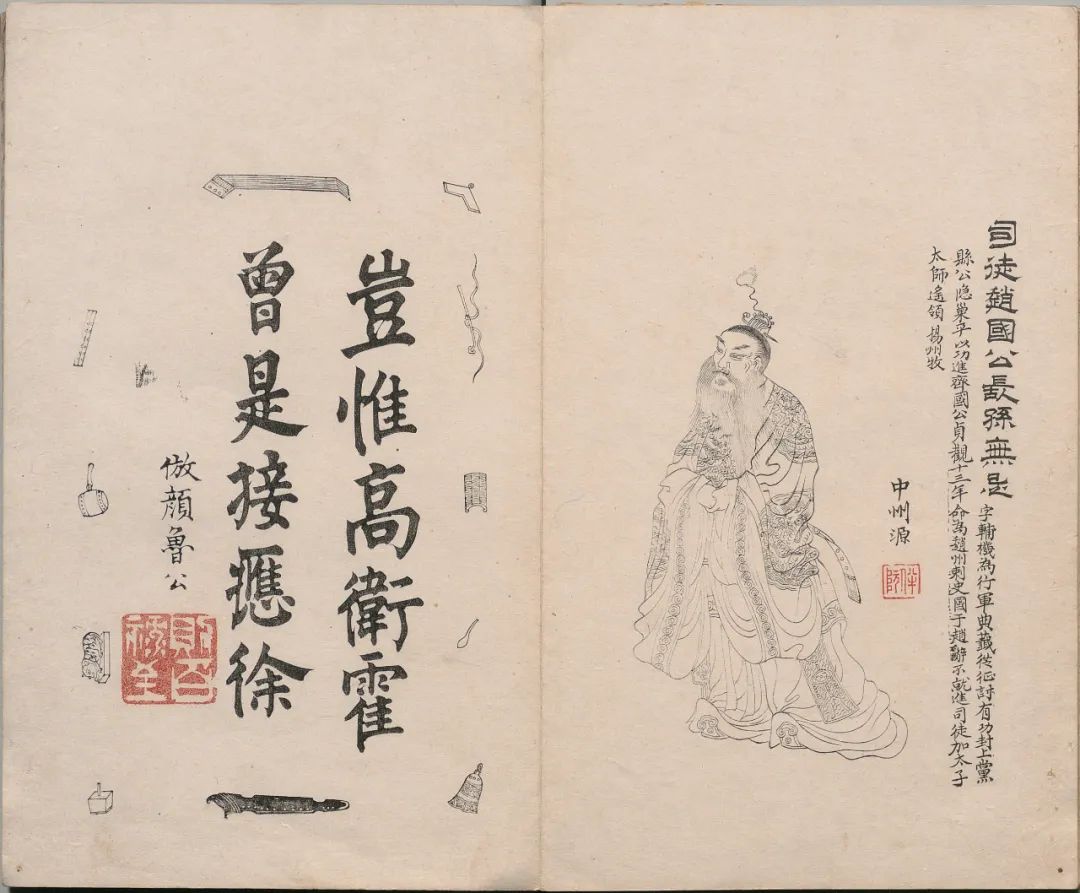 司徒趙國公長孫無忌 字輔機為行軍典籤從征討有功封上黨
縣公隱巢平以功進齊國公貞觀十三年命為趙州刺史國于趙辭不就進司徒加太子
太師遙領揚州牧
中州源
伴阮
豈惟高衛霍
曾是接應徐
倣顏魯公